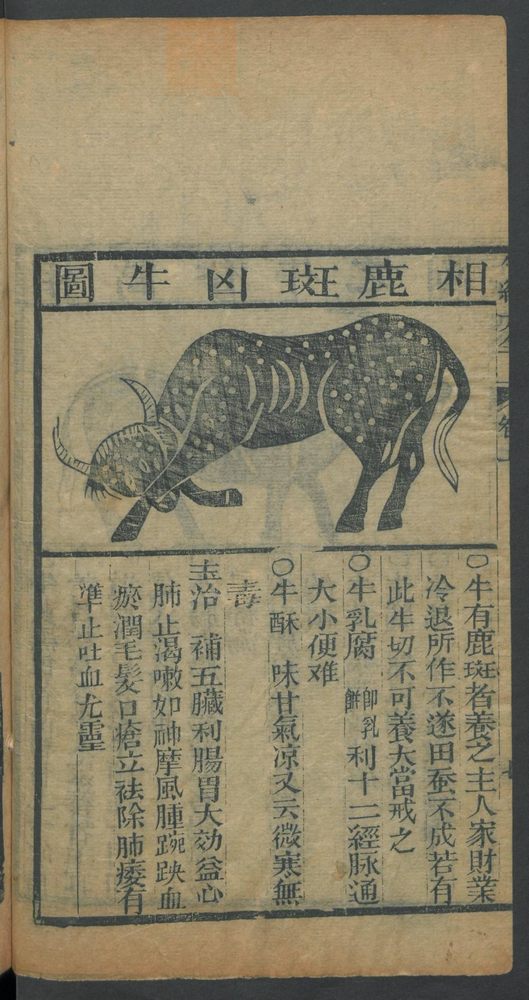 相鹿斑凶牛圖
○牛有鹿斑者養之主人家財業
冷退所作不遂田蚕不成若有
此牛切不可養大當戒之
○牛乳腐 卽乳餅 利十二經脉通
大小便难
○牛酥 味甘氣凉又云微寒無
毒
主治 補五臟利腸胃大効益心
肺止渴嗽如神摩風腫踠跌血
瘀潤毛髮口瘡立袪除肺痿有
準止吐血尤靈